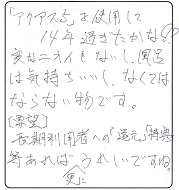 「アクアス5」を使用して
14年過ぎたかな?
変なニオイもないし、風呂
は気持ちいいし、なくては
ならない物です。
[要望]
長期利用者への「還元」「特典」
等あればうれしいですね。
更に